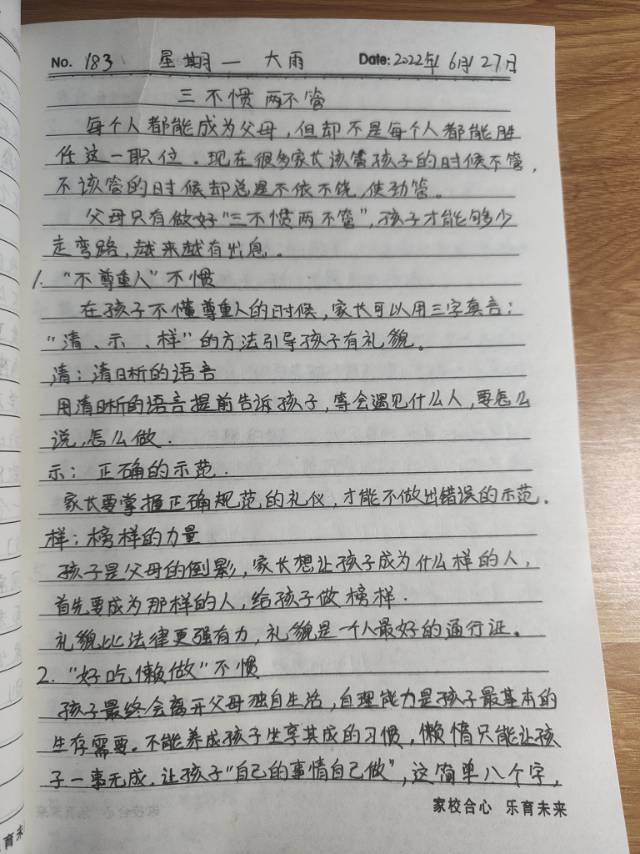 No. 183 星期一 大雨 Date: 2022年6月27日
三不惯 两不管
每个人都能成为父母,但却不是每个人都能胜
任这一职位。现在很多家长该管孩子的时候不管,
不该管的时候却总是不依不饶,使劲管。
父母只有做好“三不惯两不管”,孩子才能够少
走弯路,越来越有出息。
1. “不尊重人”不惯
在孩子不懂尊重人的时候,家长可以用三字真言:
“清、示、样”的方法引导孩子有礼貌。
清:清晰的语言
用清晰的语言提前告诉孩子,等会遇见什么人,要怎么
说,怎么做.
示:正确的示范.
家长要掌握正确规范的礼仪,才能不做出错误的示范.
样:榜样的力量
孩子是父母的倒影,家长想让孩子成为什么样的人,
首先要成为那样的人,给孩子做榜样.
礼貌比法律更强有力,礼貌是一个人最好的通行证。
2. “好吃懒做”不惯
孩子最终会离开父母独自生活,自理能力是孩子最基本的
生存需要。不能养成孩子坐享其成的习惯,懒惰只能让孩
子一事无成.让孩子“自己的事情自己做”,这简单八个字,
家校合心 乐育未来